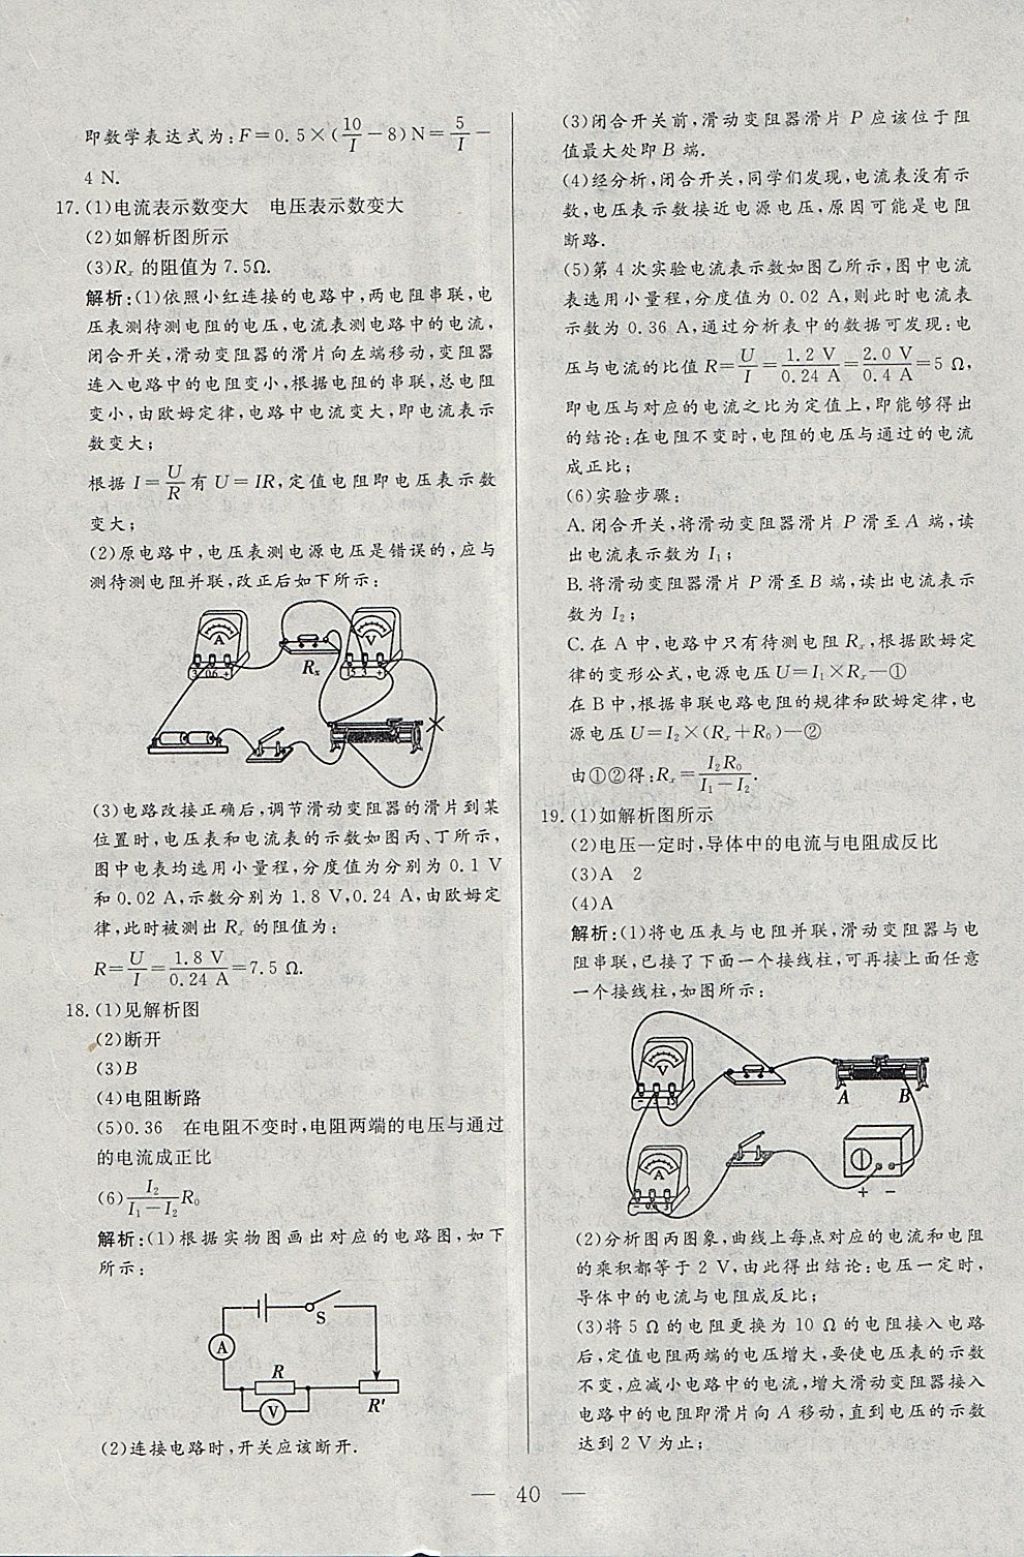 即数学表达式为:F=0.5×(10/I－8)N=5/I－
4 N.
17.(1)电流表示数变大　电压表示数变大
(2)如解析图所示
(3)Rx 的阻值为7.5Ω.
解析:(1)依照小红连接的电路中,两电阻串联,电
压表测待测电阻的电压,电流表测电路中的电流,
闭合开关,滑动变阻器的滑片向左端移动,变阻器
连入电路中的电阻变小,根据电阻的串联,总电阻
变小,由欧姆定律,电路中电流变大,即电流表示
数变大;
根据 I=U/R 有 U=IR,定值电阻即电压表示数
变大;
(2)原电路中,电压表测电源电压是错误的,应与
测待测电阻并联,改正后如下所示:
A
V
Rx
(3)电路改接正确后,调节滑动变阻器的滑片到某
位置时,电压表和电流表的示数如图丙、丁所示,
图中电表均选用小量程,分度值为分别为 0.1 V
和0.02 A,示数分别为1.8 V,0.24 A,由欧姆定
律,此时被测出 Rx 的阻值为:
R=U/I=1.8 V/0.24 A=7.5 Ω.
18.(1)见解析图
(2)断开
(3)B
(4)电阻断路
(5)0.36　在电阻不变时,电阻两端的电压与通过
的电流成正比
(6) I2/(I1－I2) R0
解析:(1)根据实物图画出对应的电路图,如下
所示:
S
A
R
V
R'
(2)连接电路时,开关应该断开.
(3)闭合开关前,滑动变阻器滑片 P 应该位于阻
值最大处即 B 端.
(4)经分析,闭合开关,同学们发现,电流表没有示
数,电压表示数接近电源电压,原因可能是电阻
断路.
(5)第 4 次实验电流表示数如图乙所示,图中电流
表选用小量程,分度值为 0.02 A,则此时电流表
示数为 0.36 A,通过分析表中的数据可发现:电
压与电流的比值 R=U/I=1.2 V/0.24 A=2.0 V/0.4 A=5 Ω,
即电压与对应的电流之比为定值上,即能够得出
的结论:在电阻不变时,电阻的电压与通过的电流
成正比;
(6)实验步骤:
A.闭合开关,将滑动变阻器滑片 P 滑至 A 端,读
出电流表示数为 I1;
B.将滑动变阻器滑片 P 滑至 B 端,读出电流表示
数为 I2;
C.在 A 中,电路中只有待测电阻 Rx,根据欧姆定
律的变形公式,电源电压U=I1×Rx—①
在 B 中,根据串联电路电阻的规律和欧姆定律,电
源电压U=I2×(Rx+R0)—②
由①②得:Rx=I2R0/(I1－I2).
19.(1)如解析图所示
(2)电压一定时,导体中的电流与电阻成反比
(3)A　2
(4)A
解析:(1)将电压表与电阻并联,滑动变阻器与电
阻串联,已接了下面一个接线柱,可再接上面任意
一个接线柱,如图所示:
V
A
B
A
+ －
(2)分析图丙图象,曲线上每点对应的电流和电阻
的乘积都等于 2 V,由此得出结论:电压一定时,
导体中的电流与电阻成反比;
(3)将 5 Ω 的电阻更换为 10 Ω 的电阻接入电路
后,定值电阻两端的电压增大,要使电压表的示数
不变,应减小电路中的电流,增大滑动变阻器接入
电路中的电阻即滑片向 A 移动,直到电压的示数
达到 2 V 为止;
— 40 —